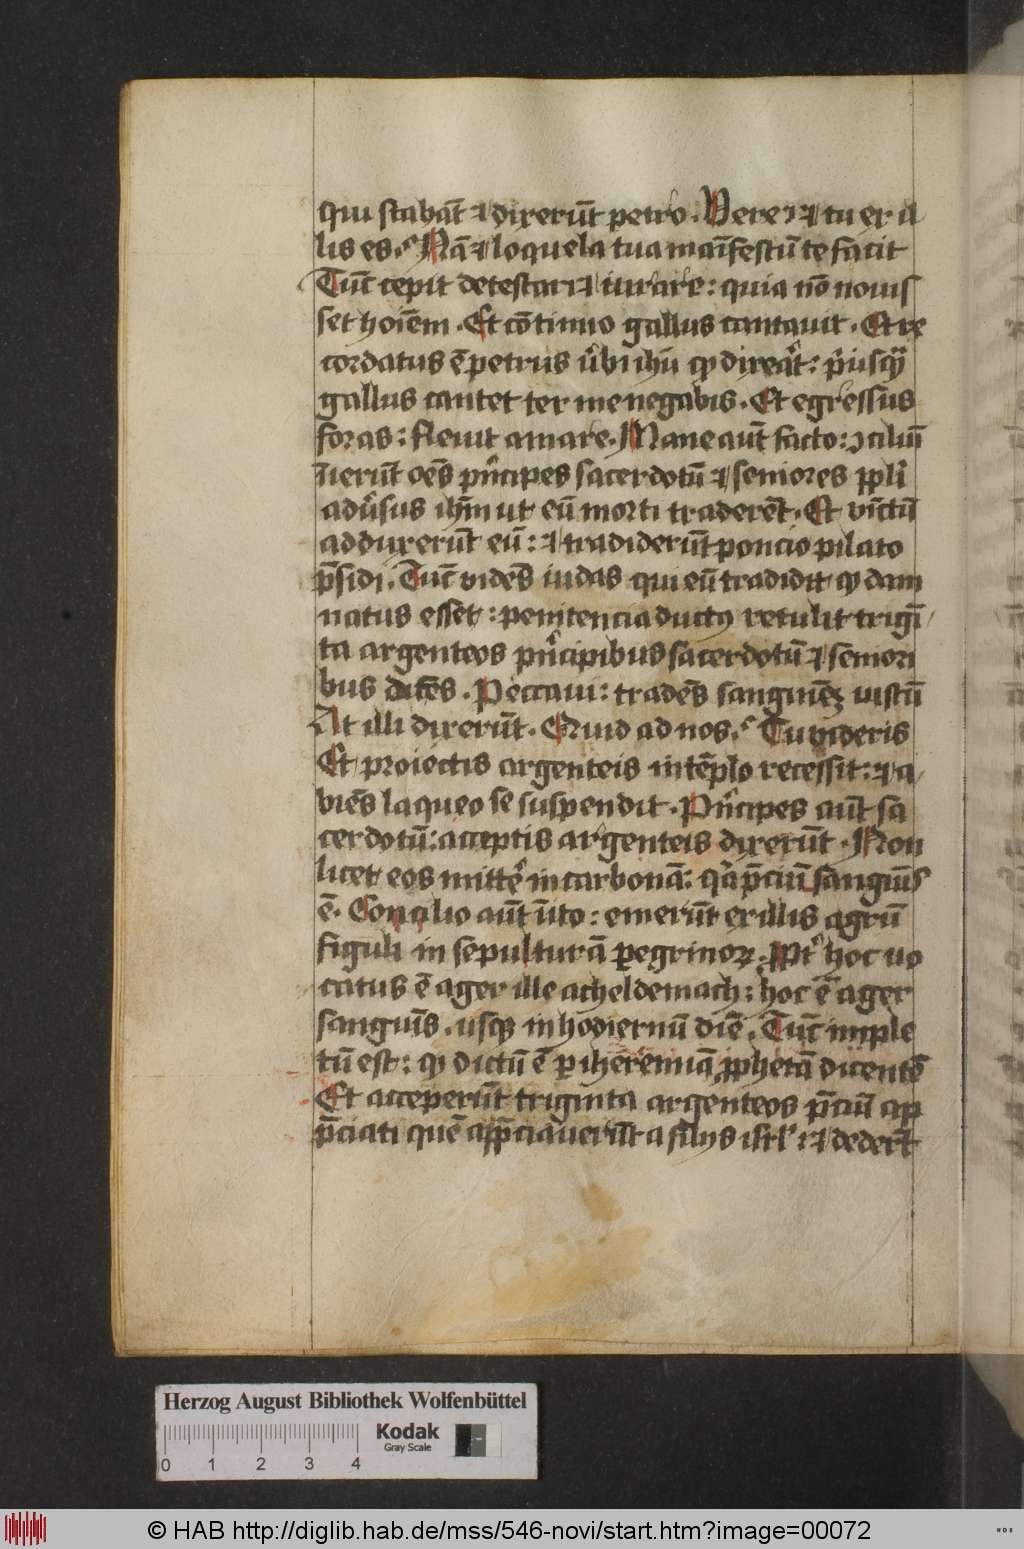 qui stabāt ⁊ dixerūt petro . Vere ⁊ tu ex il
lis es . Nā ⁊ loquela tua maīfestū te facit
Tūc cepit detestari ⁊ iurare : quia nō nouis
set hoīem . Et cōtinuo gallus cantauit . Et re
cordatus ē petrus ūbi ihū qd dixerat : priusqͣ
gallus cantet ter me negabis . Et egressus
foras : fleuit amare . Mane aūt facto : ↄciliū
īierūt oēs pncipes sacerdotū ⁊ seniores ppli
adūsus ihm ut eū morti traderēt . Et vīctū
adduxerūt eū : ⁊ tradiderūt poncio pilato
p̄sidi . Tūc vidēs iudas qui eū tradidit qd dam
natus esset : penitencia ductꝰ retulit trigī
ta argenteos pncipibus sacerdotū ⁊ seniori
bus dicēs . Peccaui : tradēs sanguinē iustū
At illi dixerūt . Quid ad nos . Tu videris
Et proiectis argenteis in tēplo recessit : ⁊ a
biēs laqueo se suspendit . Pncipes aūt sa
cerdotū : acceptis argenteis dixerūt . Non
licet eos mittē in carbonā : qa p̄ciū sanguīs
ē . Consilio aūt īito : emerūt ex illis agrū
figuli in sepulturā peregrinoꝝ . Ppt hoc uo
catus ē ager ille acheldemach : hoc ē ager
sanguīs . usqꝫ in hodiernū diē . Tūc imple
tū est : qd dictū ē per iheremiā pphetā dicentē
Et acceperūt triginta argēteos p̄ciū ap
p̄ciati quē app̄ciauerūt a filijs isrl : ⁊ dederūt
Herzog August Bibliothek Wolfenbüttel
Kodak
Gray Scale
0 1 2 3 4
© HAB http://diglib.hab.de/mss/546-novi/start.htm?image=00072